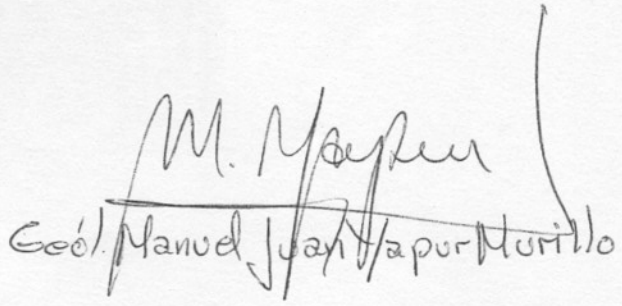 M. Yapur
Geól. Manuel Juan Yapur Murillo